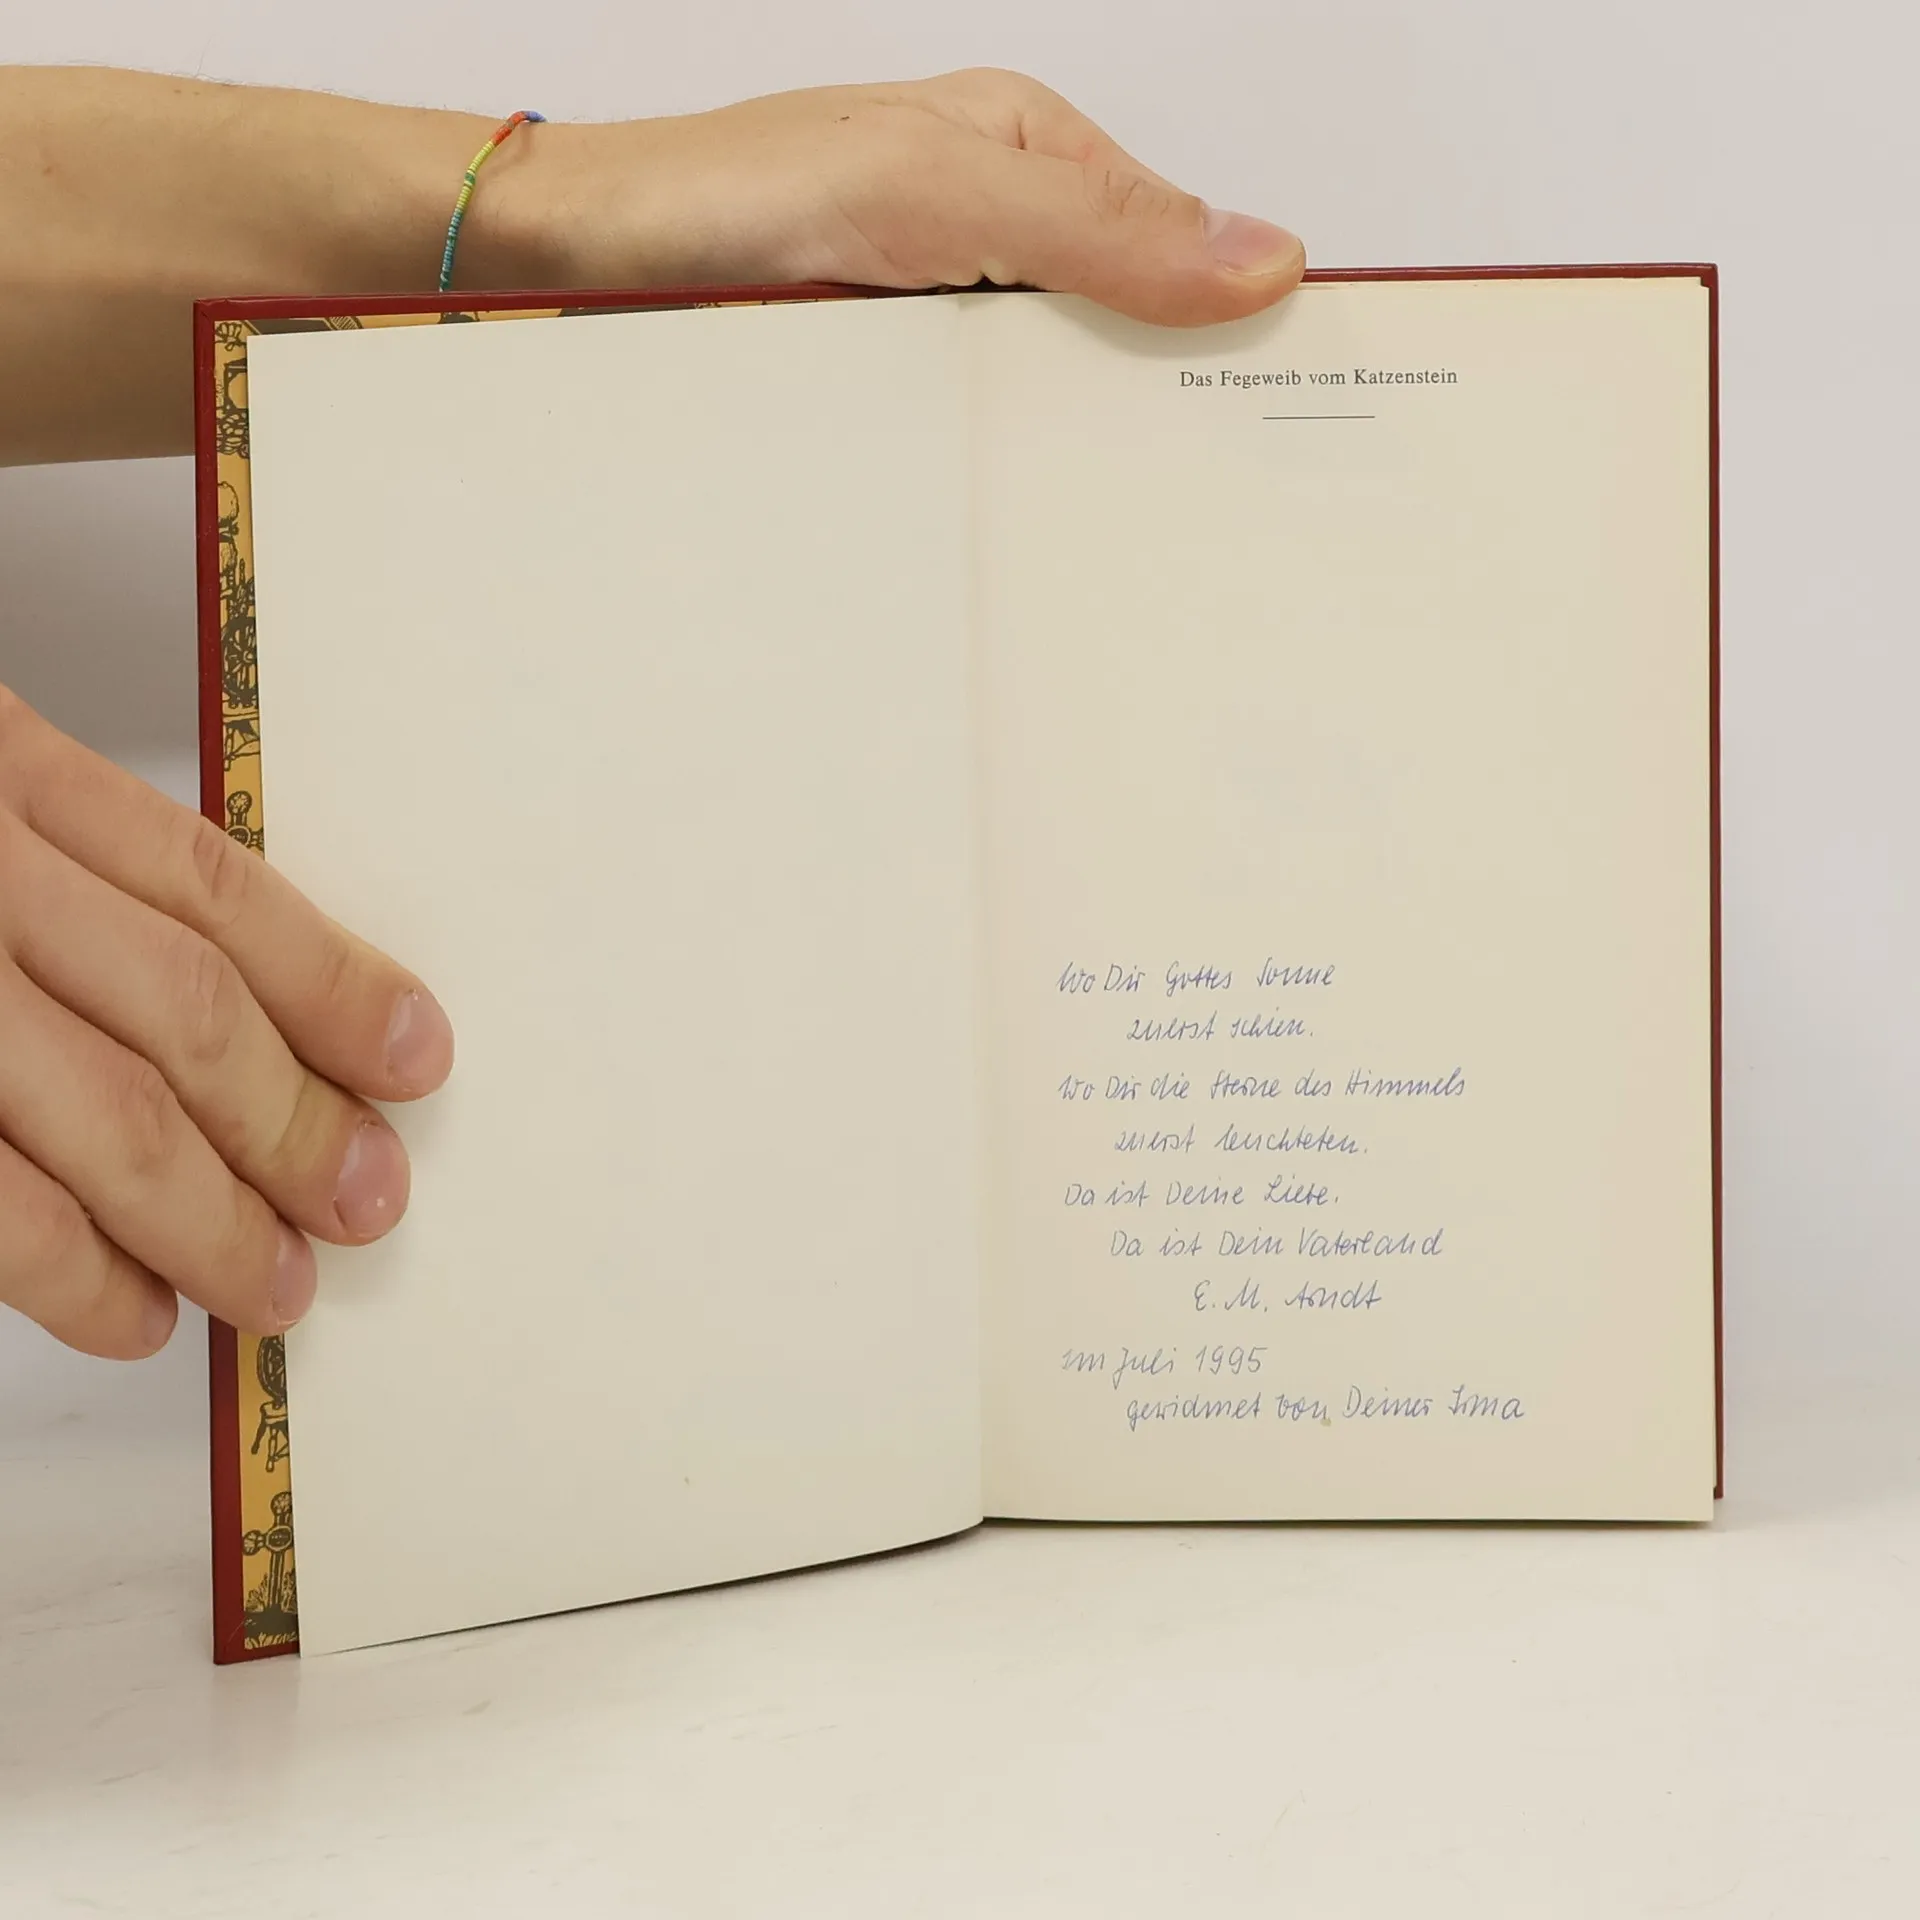 Das Fegeweib vom Katzenstein
Wo Dir Gottes Sonne
zuerst schien.
Wo Dir die Sterne des Himmels
zuerst leuchteten.
Da ist Deine Liebe.
Da ist Dein Vaterland
E. M. Arndt
im Juli 1995
gewidmet von Deiner Irma